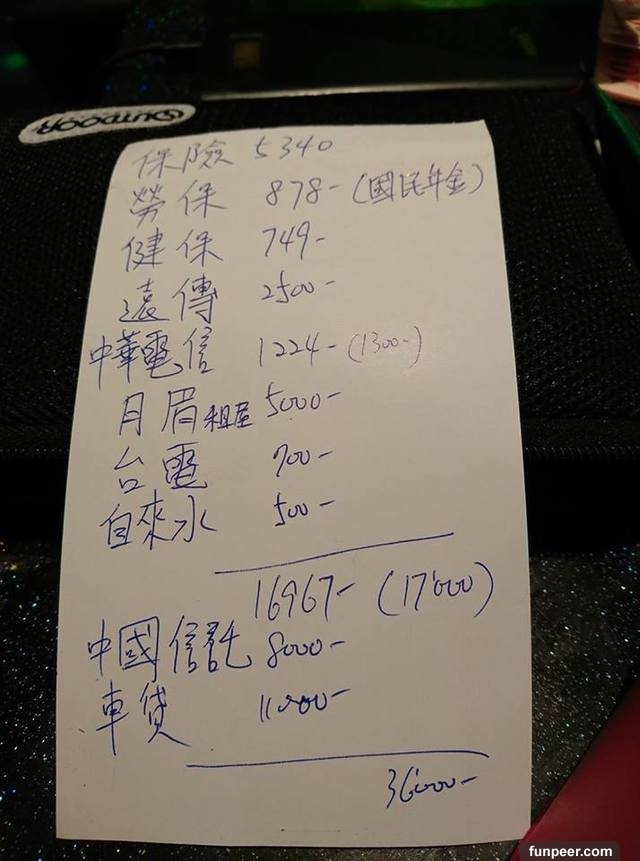 OUTDOOR
保險 5340
勞保 878-(國民年金)
健保 749-
遠傳 2500-
中華電信 1224-(1300-)
月眉租屋 5000-
台電 700-
自來水 500-
16967-(17000)
中國信託 8000-
車貸 11000-
36000-
funpeer.com